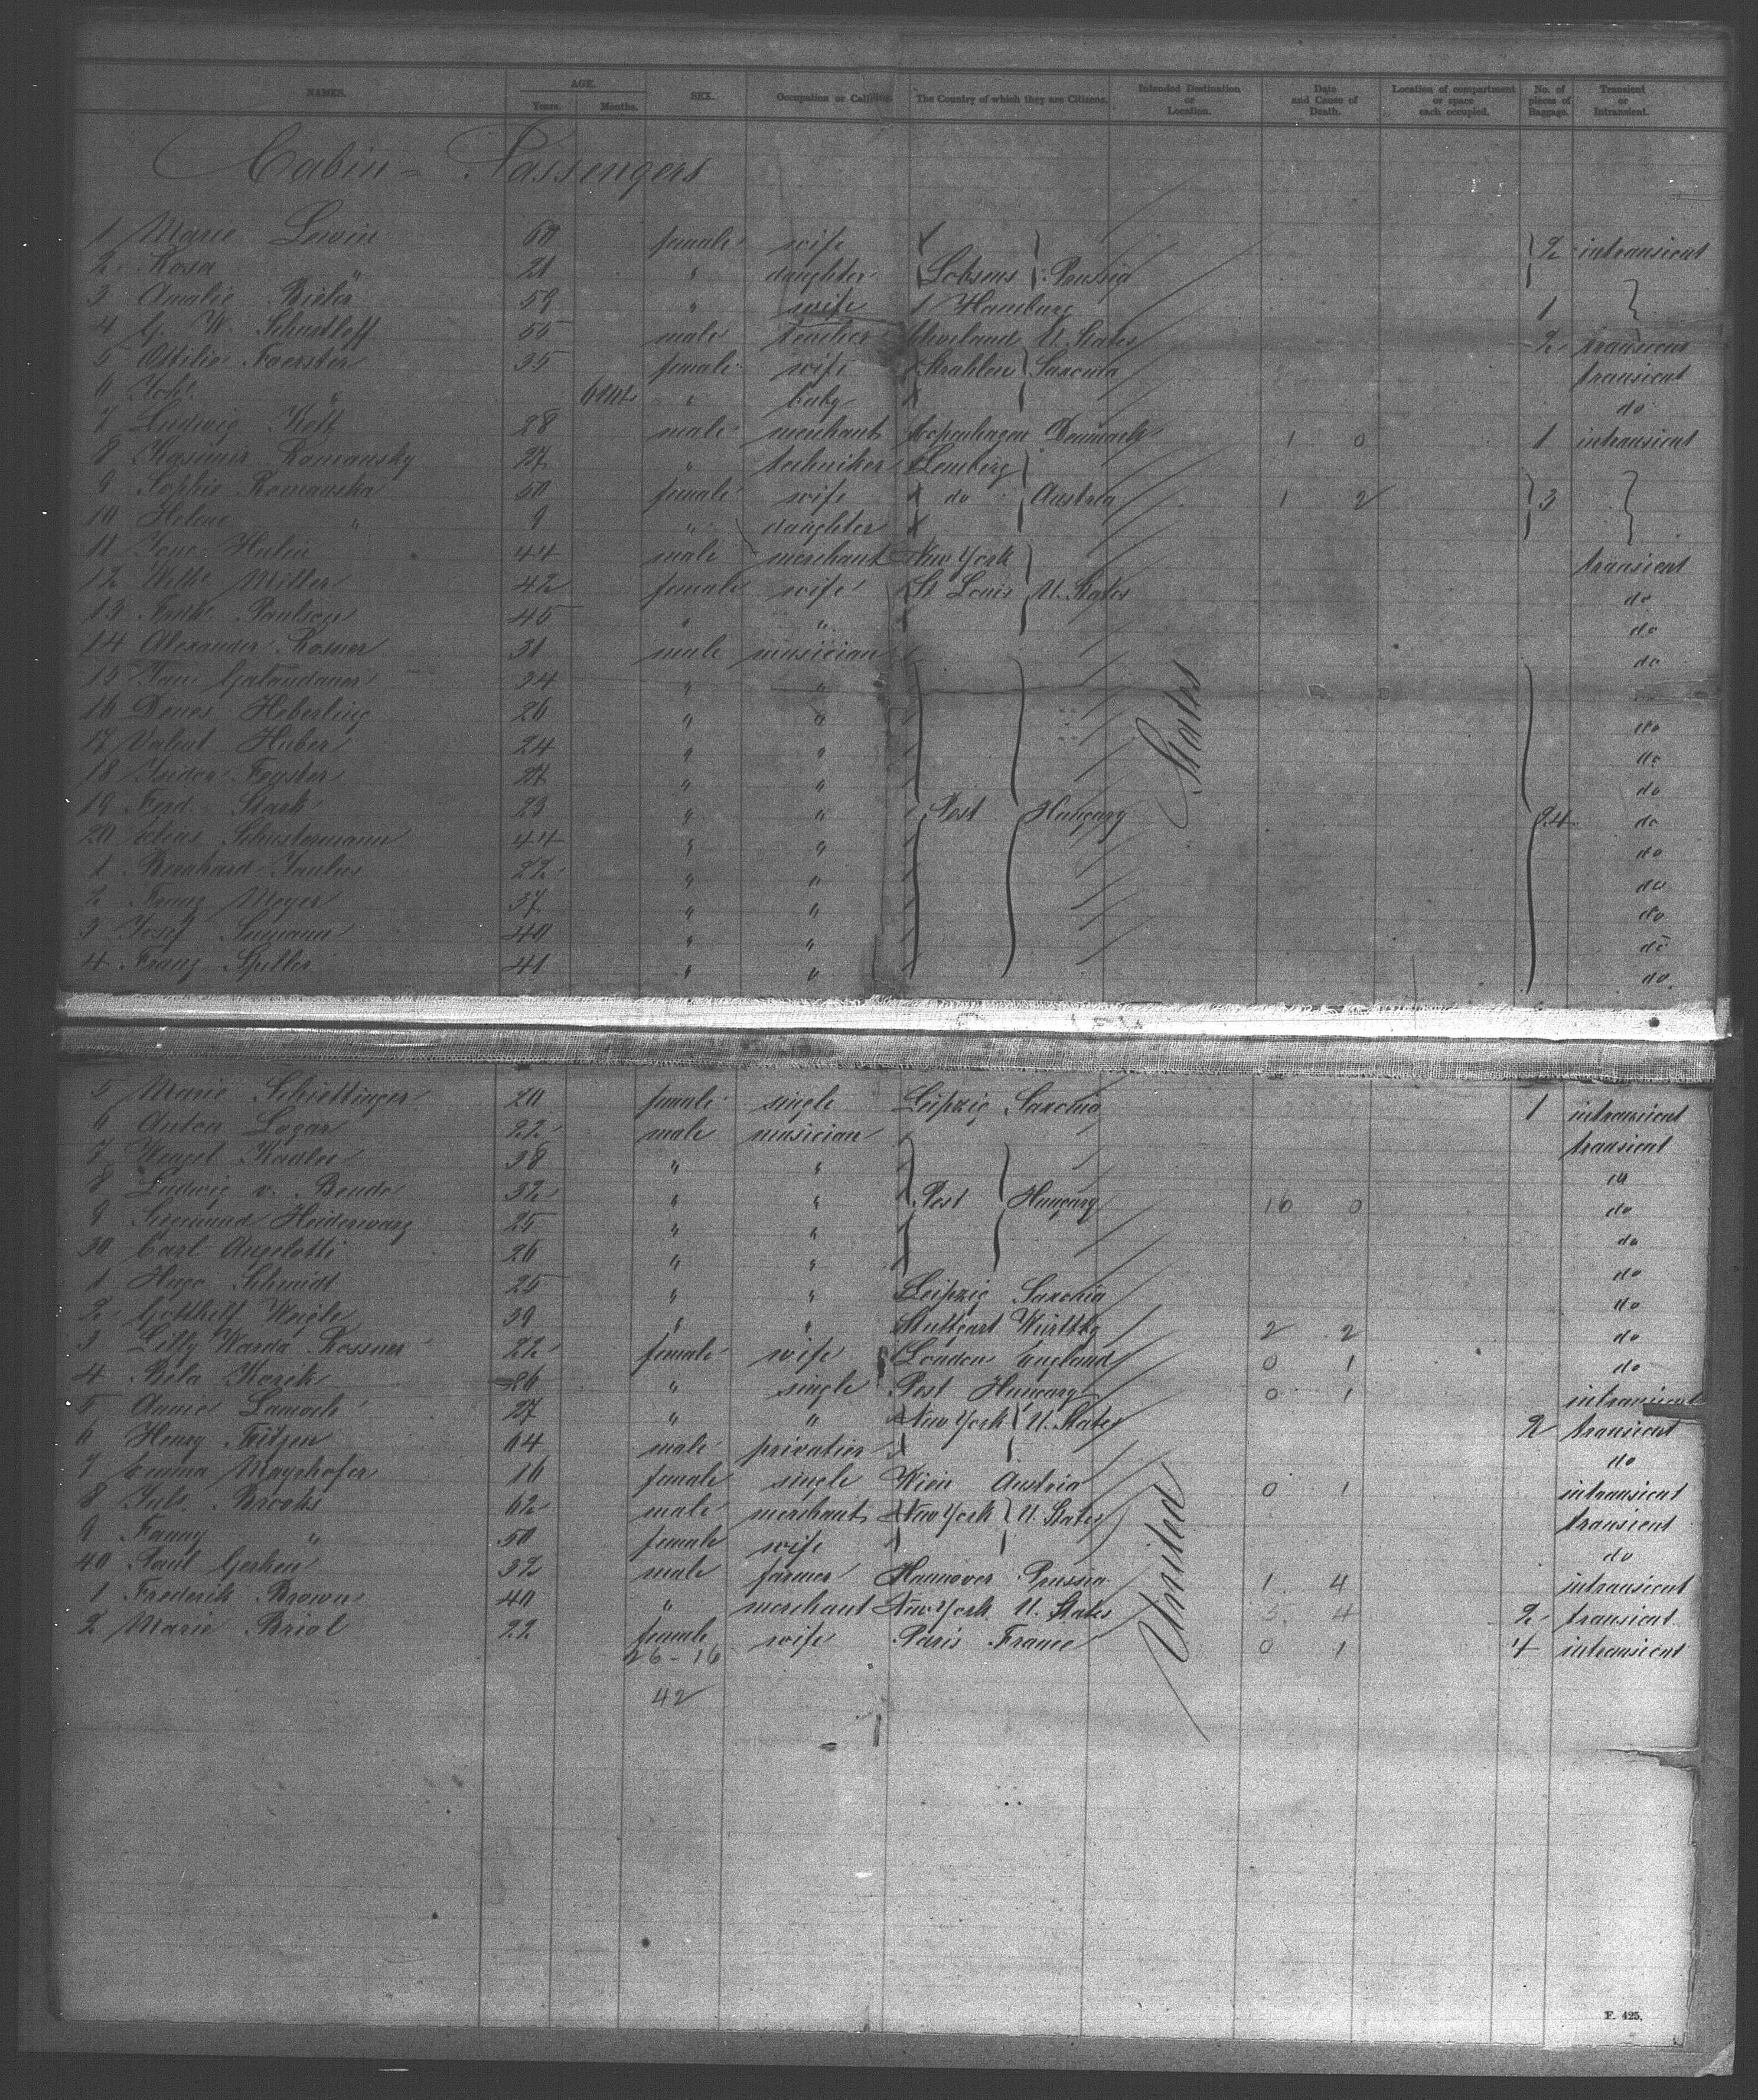 NAMES. AGE. Years. Months. SEX. Occupation or Calling. The Country of which they are Citizens. Intended Destination or Location. Date and Cause of Death. Location of compartment or space each occupied. No. of pieces of Baggage. Transient or Intransient.
Cabin = Passengers
1 Marie Lewin 60 female wife 2 intransient
2 Rosa " 21 " daughter Lobsens Prussia
3 Amalie Bieler 59 " wife Hamburg 1
4 G. W. Schurtleff 55 male teacher Cleveland U. States 2 transient
5 Ottilie Foerster 35 female wife Strahlen Saxonia transient
6 " 6 mts " baby do
7 Ludwig 28 male merchant Copenhagen Denmark 1 0 1 intransient
8 Kasimir Romansky 27 " techniker Lemberg
9 Sophie Romanska 50 female wife do Austria 1 2 3
10 Helene " 9 " daughter
11 Hulin 44 male merchant New York transient
12 Miller 42 female wife St. Louis U. States do
13 Paulson 45 " " do
14 Alexander Rosner 31 male musician do
15 34 " "
16 Denes Heberling 26 " " do
17 Valent Huber 24 " " do
18 Isidor 27 " " do
19 Ferd. Stark 23 " " Pest Hungary 24 do
20 Elias Schustermann 44 " " do
1 Bernhard Paulus 22 " " do
2 Franz Meyer 37 " " do
3 Josef 40 " " do
4 Franz Speller 41 " " do.
5 Marie Schiettinger 20 female single Leipzig Saxonia 1 intransient
6 Anton Lazar 22 male musician transient
7 Wenzel 38 " "
8 Ludwig v. Benda 32 " " Pest Hungary 16 0 do
9 Siegmund 25 " " do
30 Carl Angelotti 26 " " do
1 Hugo Schmidt 25 " " Leipzig Saxonia do
2 Gotthelf Weigle 39 " " Stuttgart Württbg 2 2 do
3 Lilly Warda Rossner 22 female wife London England 0 1 do
4 Bela 26 " single Pest Hungary 0 1 intransient
5 Annie 27 " " New York U. States 2 transient
6 Henry 64 male privatier do
7 Emma Mayrhofer 16 female single Wien Austria 0 1 intransient
8 Juls. Brooks 62 male merchant New York U. States transient
9 Fanny " 50 female wife do
40 Paul Gerken 32 male farmer Hannover Prussia 1 4 intransient
1 Frederik Brown 40 " merchant New York U. States 5 4 2 transient
2 Marie Briol 22 female wife Paris France 0 1 4 intransient
26 - 16
42
United States
F. 425.